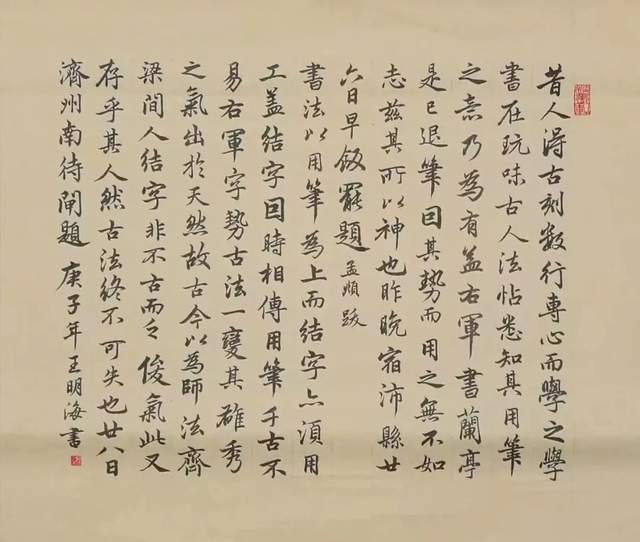 昔人得古刻數行專心而學之學
書在玩味古人法帖悉知其用筆
之意乃為有益右軍書蘭亭
是已退筆因其勢而用之無不如
志茲其所以神也昨晚宿沛縣廿
六日早飯罷題 孟順跋
書法以用筆為上而結字亦須用
工盖結字因時相傳用筆千古不
易右軍字勢古法一變其雄秀
之氣出於天然故古今以為師法齊
梁間人結字非不古而乏俊氣此又
存乎其人然古法終不可失也廿八日
濟州南待閘題 庚子年王明海書